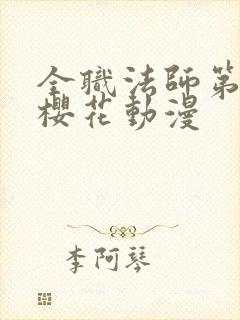 全職法師第
櫻花動漫
李阿琴